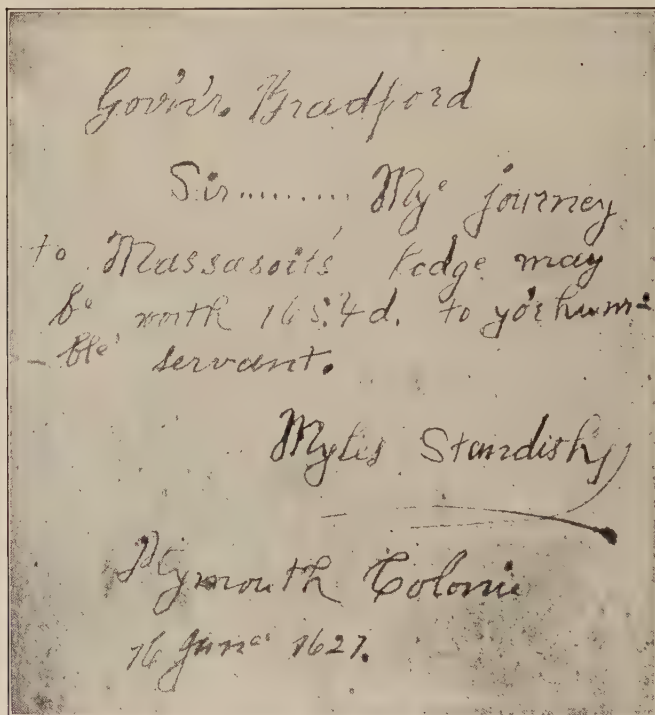 Gov'n'r. Bradford
Sir......... Mye journey
to Massasoits' Lodge may
be worth 16 s. 4 d. to yo'r hum=
-ble servant.
Myles Standish
Plymouth Colonie
16 June 1627.